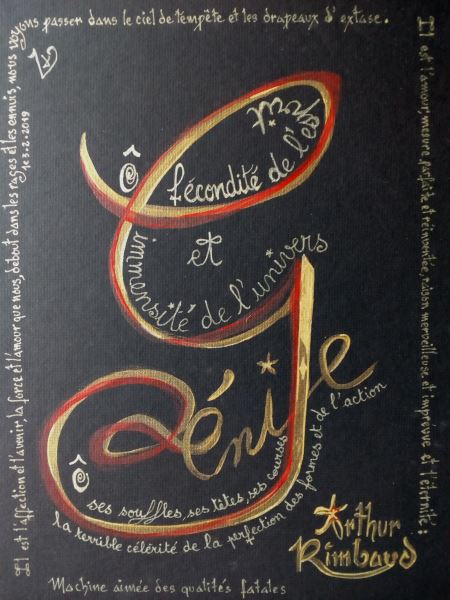 Il est l'affection et l'avenir, la force et l'amour que nous, debout dans les rages et les ennuis, nous voy
ons passer dans le ciel de tempête et les drapeaux d'extase.
le 3.2.2019
Il est l'amour, mesure parfaite et réinventée, raison merveilleuse et imprévue et l'éternité :
Ô fécondité de l'esprit
et
immensité de l'univers
Génie
Ô ses souffles, ses têtes, ses courses
la terrible célérité de la perfection des formes et de l'action
Machine aimée des qualités fatales
Arthur
Rimbaud